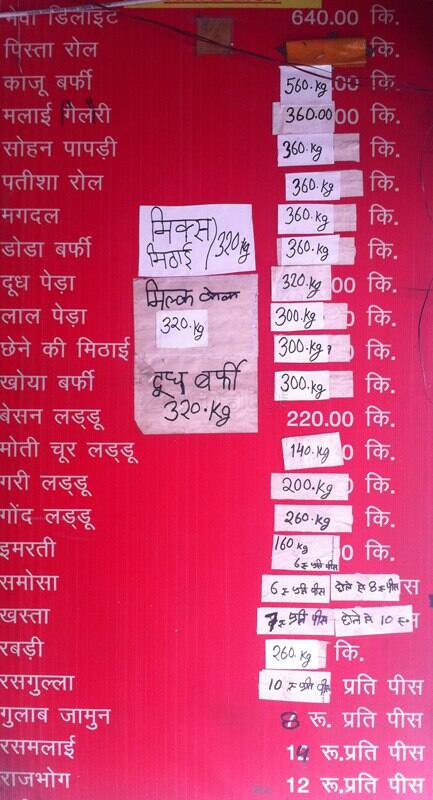 डिलाइट 640.00 कि.
पिस्ता रोल कि.
काजू बर्फी 560.kg 00 कि.
मलाई गिलौरी 360.00 00 कि.
सोहन पापड़ी 360.kg कि.
पतीशा रोल 360.kg कि.
मगदल 360.kg कि.
मिक्स मिठाई 320kg
डोडा बर्फी 360.kg कि.
दूध पेड़ा 320.kg 00 कि.
मिल्क केक
320.kg
लाल पेड़ा 300.kg कि.
छेने की मिठाई 300.kg कि.
दूध बर्फी
320.kg
खोया बर्फी 300.kg कि.
बेसन लड्डू 220.00 कि.
मोती चूर लड्डू 140.kg 0 कि.
गरी लड्डू 200.kg कि.
गोंद लड्डू 260.kg कि.
इमरती 160 kg 0 कि.
6 रू प्रति पीस
समोसा 6 रू प्रति पीस दोने में 8 रू पीस स
खस्ता 7 रू प्रति पीस दोने में 10 रू
रबड़ी 260.kg कि.
रसगुल्ला 10 रू प्रति पीस प्रति पीस
गुलाब जामुन 8 रू. प्रति पीस
रसमलाई 14 रू.प्रति पीस
राजभोग 12 रू.प्रति पीस